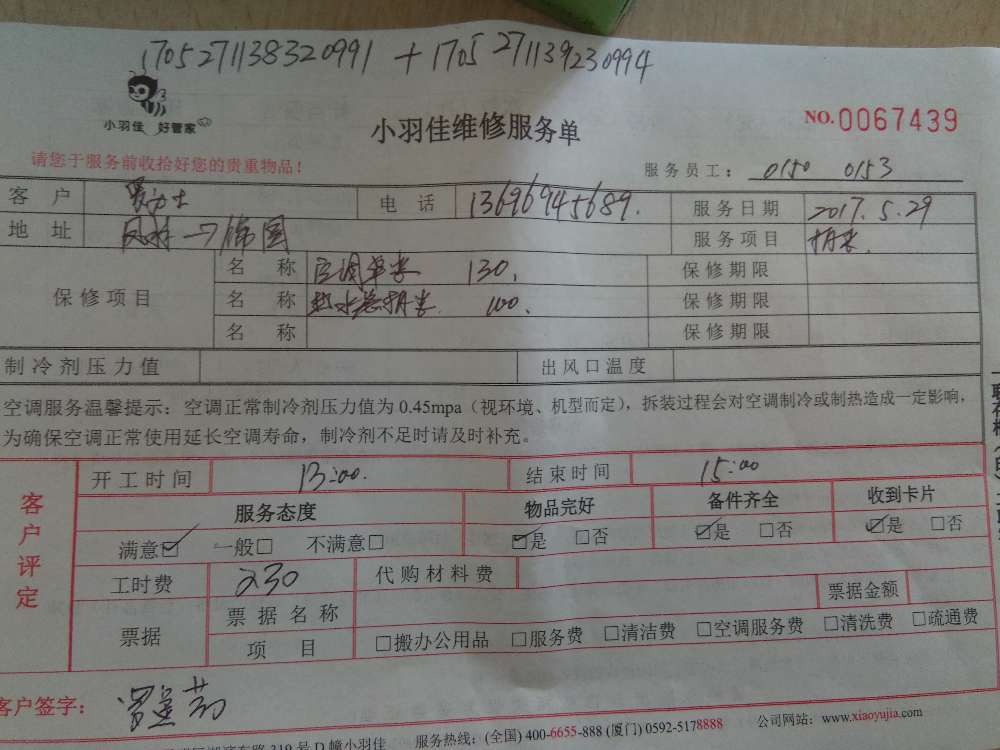 1705271138320991 + 1705271139230994
小羽佳 好管家
小羽佳维修服务单
NO.0067439
请您于服务前收拾好您的贵重物品！
服务员工： 0150 0153
客户 电话 13696945689. 服务日期 2017.5.29
地址 服务项目
保修项目
名称 130. 保修期限
名称 100. 保修期限
名称 保修期限
制冷剂压力值 出风口温度
空调服务温馨提示：空调正常制冷剂压力值为 0.45mpa（视环境、机型而定），拆装过程会对空调制冷或制热造成一定影响，
为确保空调正常使用延长空调寿命，制冷剂不足时请及时补充。
客户评定
开工时间 13:00. 结束时间 15:00
服务态度 物品完好 备件齐全 收到卡片
满意☑ 一般□ 不满意□ ☑是 □否 ☑是 □否 ☑是 □否
工时费 230 代购材料费
票据 票据名称 票据金额
项目 □搬办公用品 □服务费 □清洁费 □空调服务费 □清洗费 □疏通费
客户签字：
319号D幢小羽佳 服务热线：(全国) 400-6655-888 (厦门) 0592-5178888 公司网站：www.xiaoyujia.com